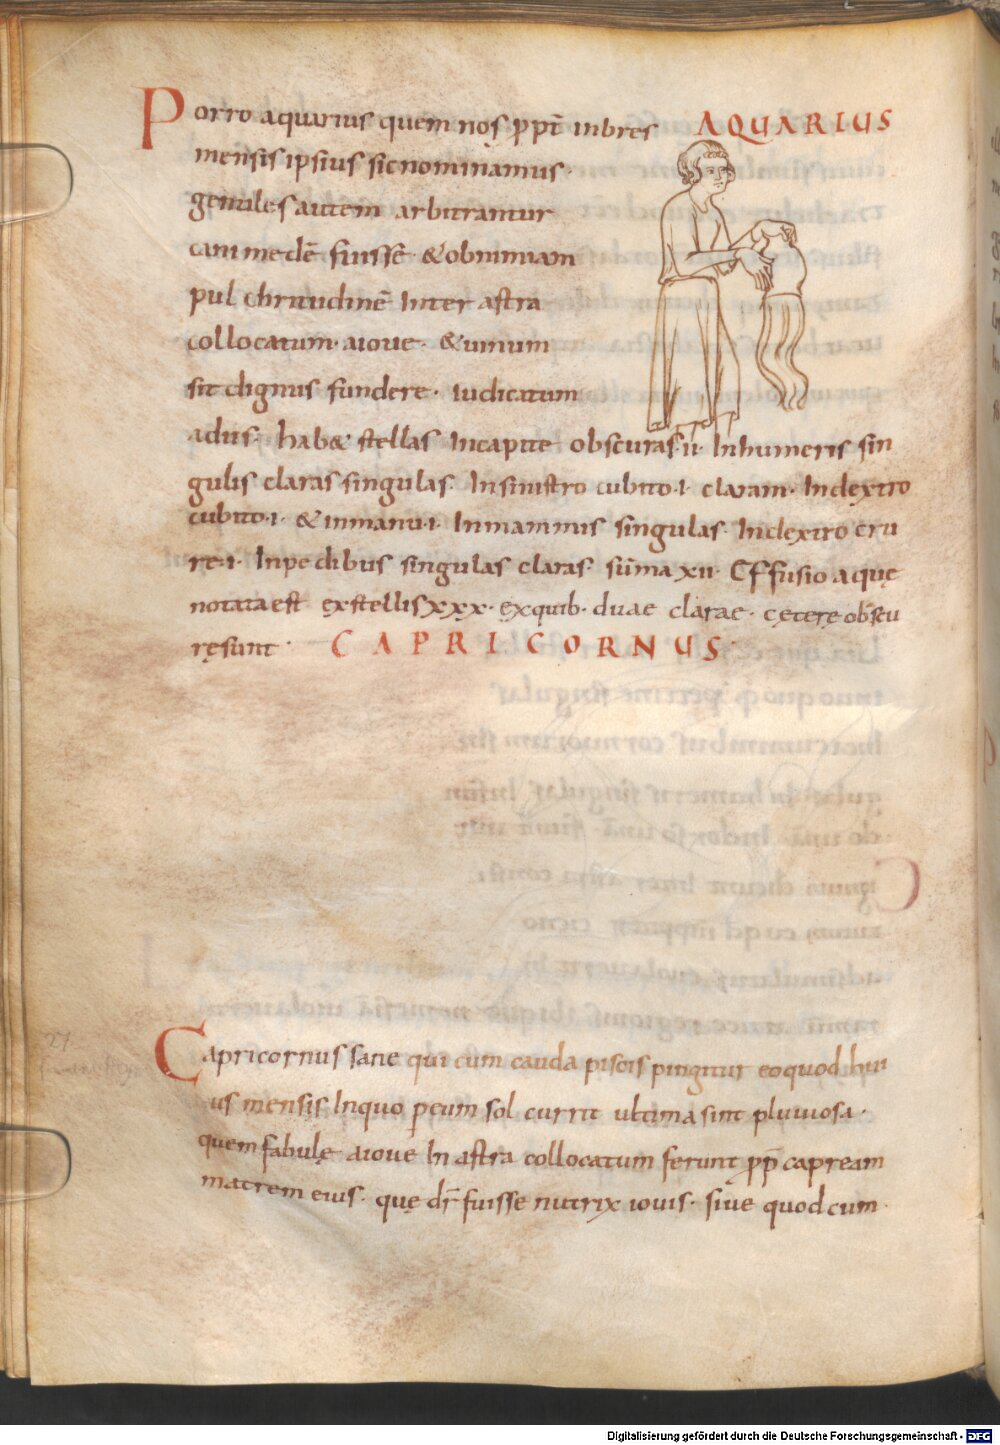 Porro aquarius quem nos ꝓpt̄ inbres AQUARIUS
mensis ipsius sicnominamus·
gentiles autem arbitrantur
canimedē fuissē· &obnimiam
pulchritudinē Inter astra
collocatum· aioue· &umum
sit dignus fundere· iudicatum
adiis· hab& stellas Incapite obscuras·ii· Inhumeris sin
gulis claras singulas· Insinistro cubito·i· claram· Indextro
cubito·i· &inmanu·i· Inmammis singulas· Indextro cru
re·i· Inpedibus singulas claras· sūma xii· Effusio aquę
notata est exstellis xxx· exquib· duae clarae· cęterę obscu
ręsunt· CAPRICORNUS·
27
Capricornus sane qui cum cauda piscis pingitur eoquod hui
us mensis Inquo ꝑeum sol currit ultima sint pluuiosa·
quem fabulę aioue In astra collocatum ferunt pp̄ capream
matrem eius· quę dr̄ fuisse nutrix iouis· siue quod cum·
Digitalisierung gefördert durch die Deutsche Forschungsgemeinschaft - DFG